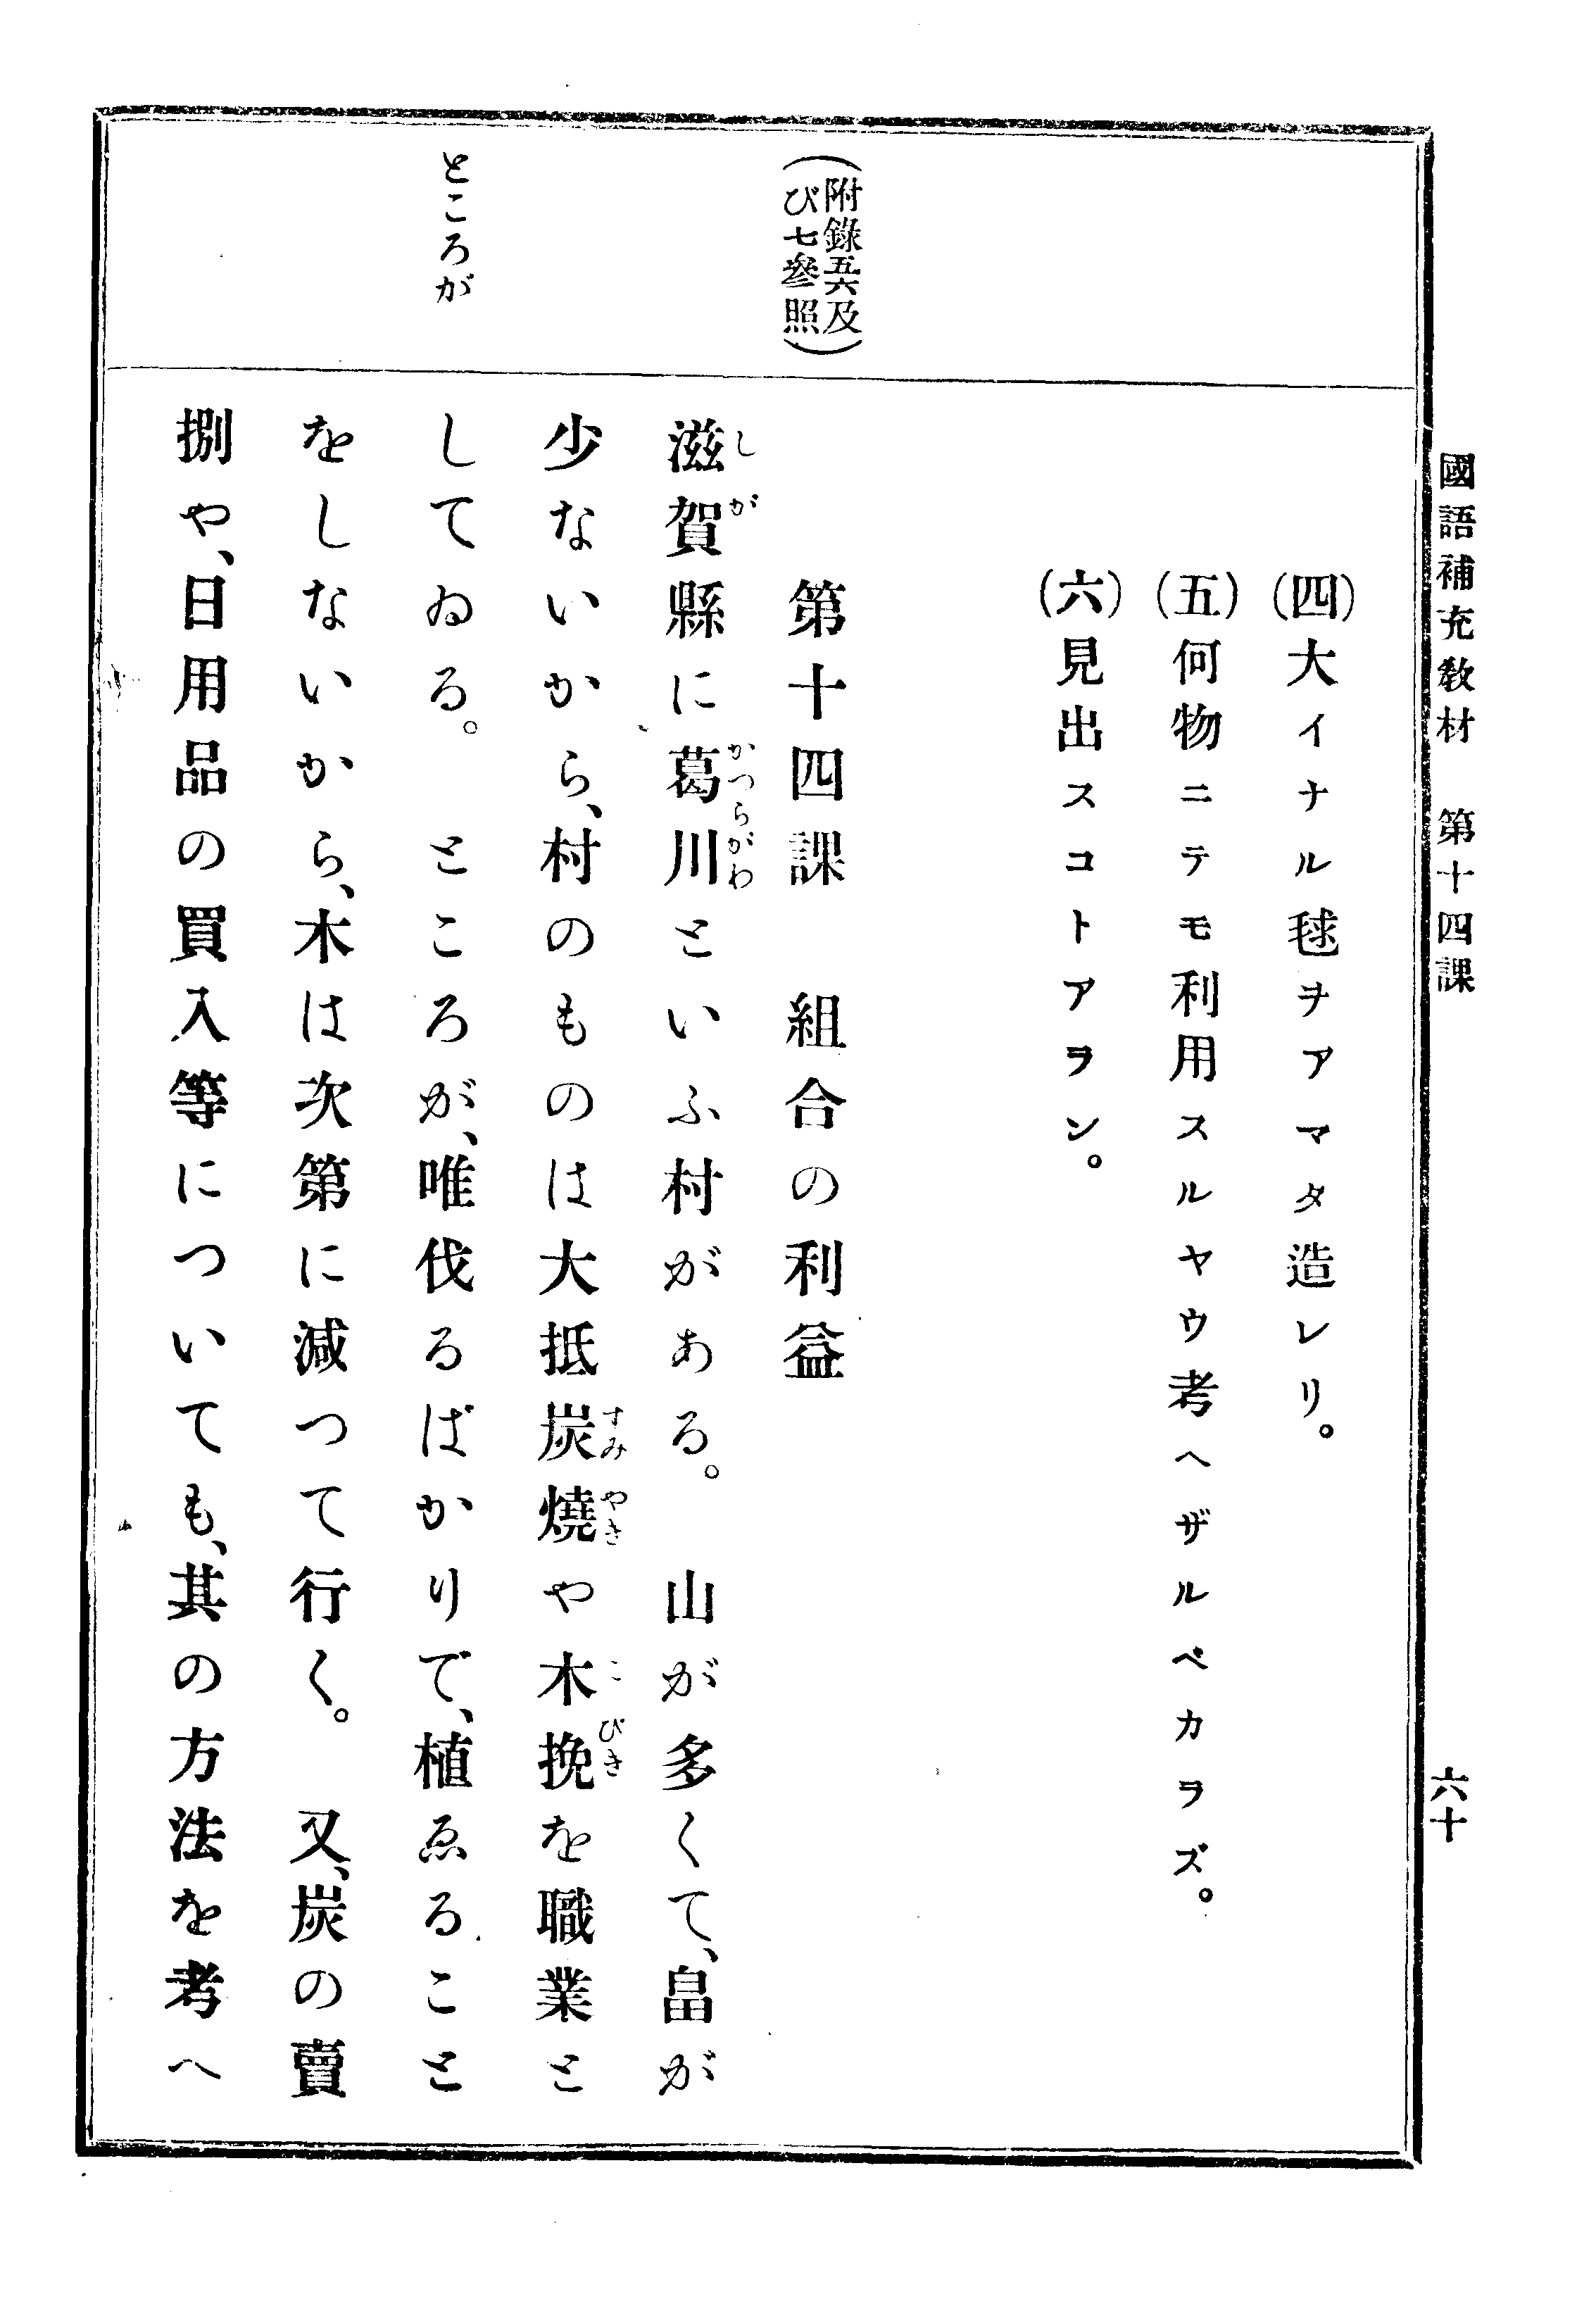 國語補充敎材　第十四課
六十
(四)大イナル毬ヲアマタ造レリ。
(五)何物ニテモ利用スルヤウ考ヘザルベカラズ。
(六)見出スコトアラン。
(附錄五六及
び七參照)
第十四課　組合の利益
滋賀縣に葛川といふ村がある。　山が多くて、畠が
しが
かつらがわ
少ないから、村のものは大抵炭燒や木挽を職業と
すみやき
こびき
ところが
してゐる。　ところが、唯伐るばかりで、植ゑること
をしないから、木は次第に減つて行く。　又、炭の賣
捌や、日用品の買入等についても、其の方法を考へ